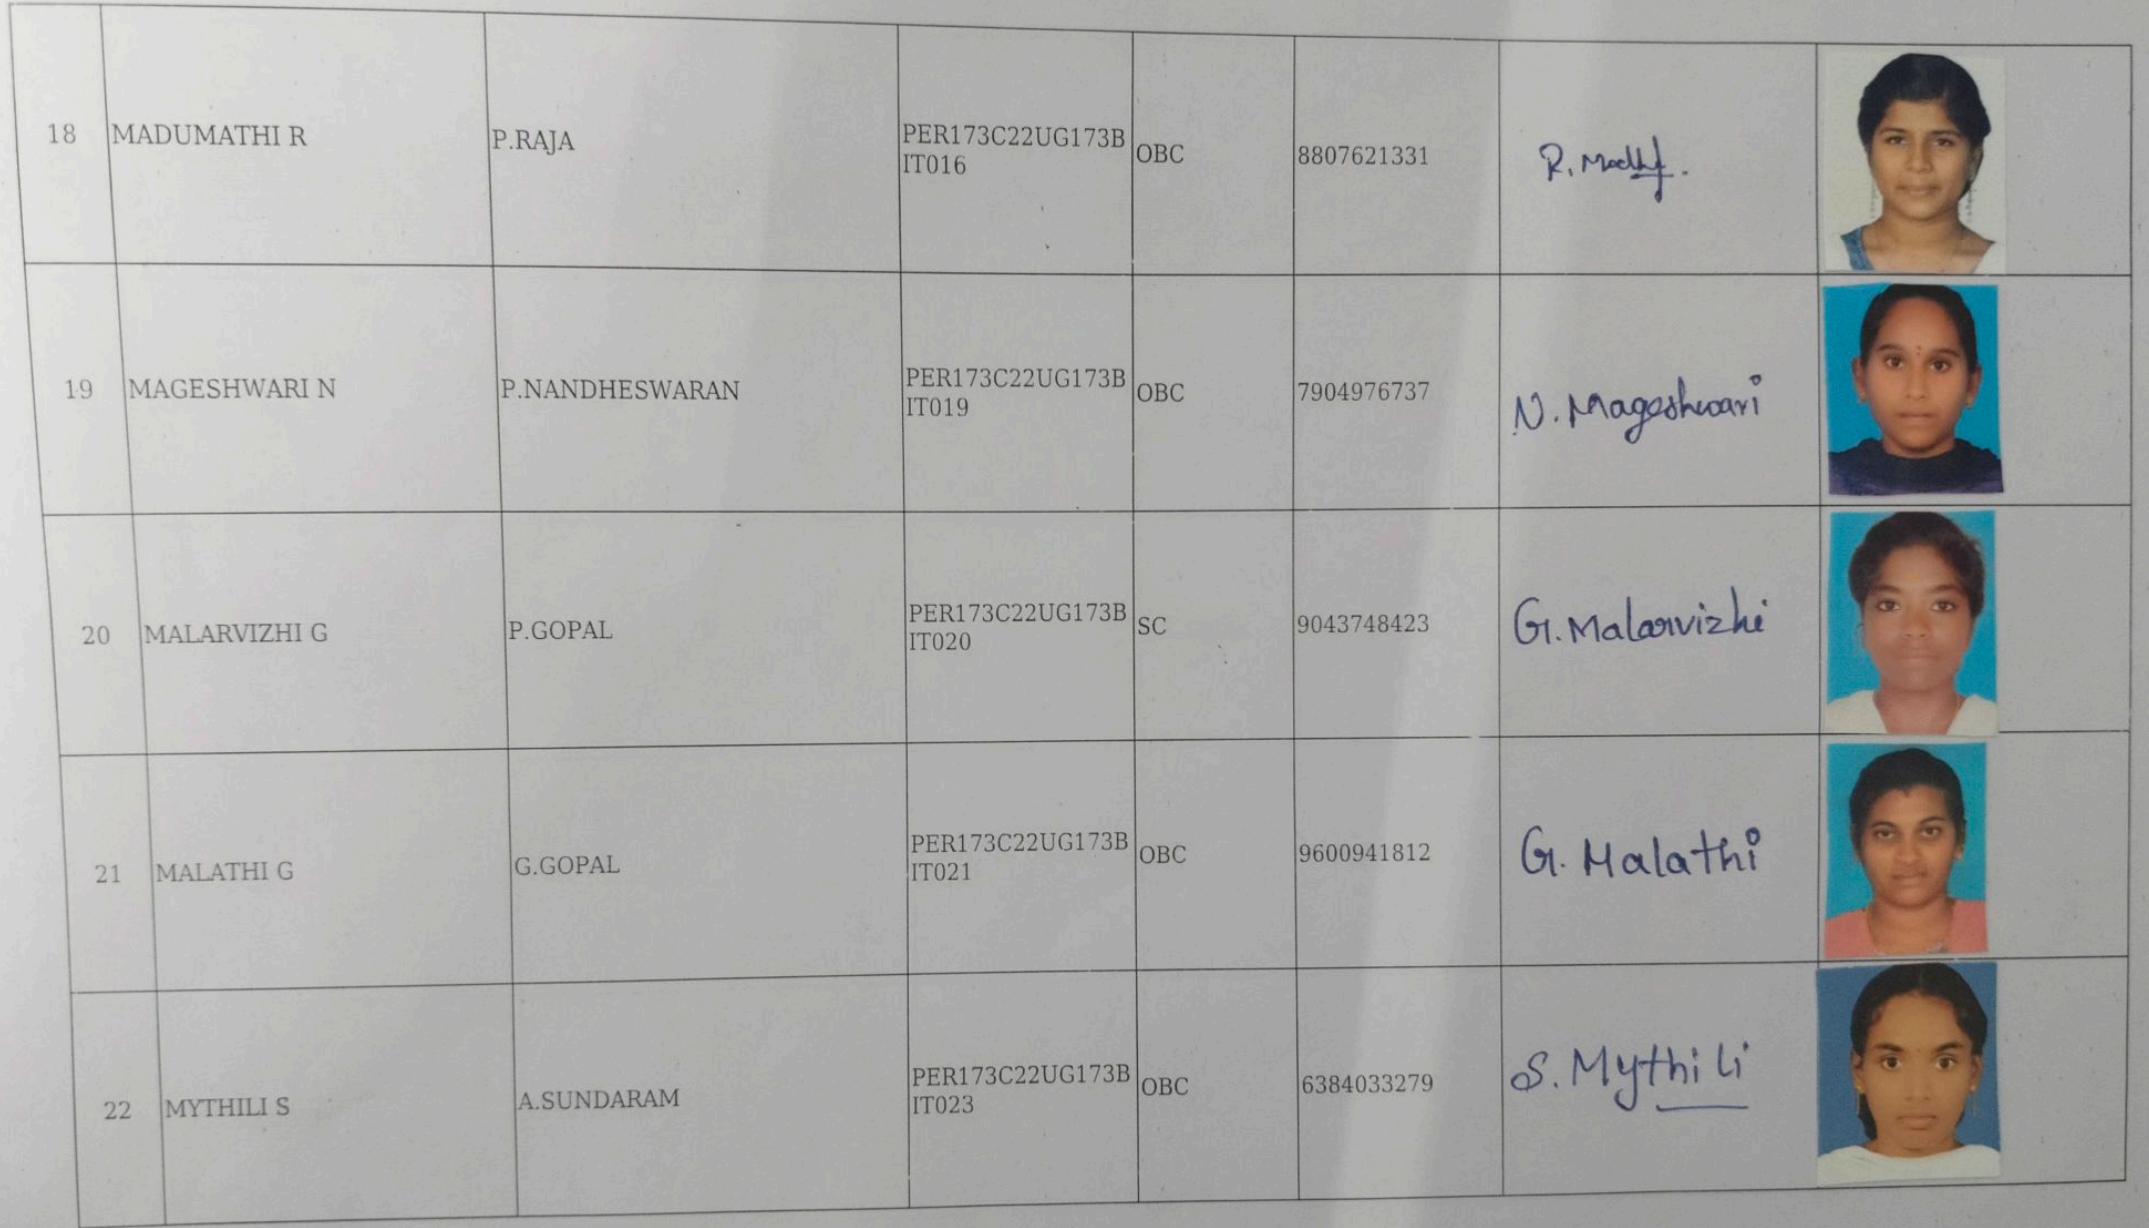 18 MADUMATHI R P.RAJA PER173C22UG173B OBC 8807621331 R. Madhf.
IT016
19 MAGESHWARI N P.NANDHESWARAN PER173C22UG173B OBC 7904976737 N. Mageshwari
IT019
20 MALARVIZHI G P.GOPAL PER173C22UG173B SC 9043748423 G. Malarvizhi
IT020
21 MALATHI G G.GOPAL PER173C22UG173B OBC 9600941812 G. Malathi
IT021
22 MYTHILI S A.SUNDARAM PER173C22UG173B OBC 6384033279 S. Mythili
IT023